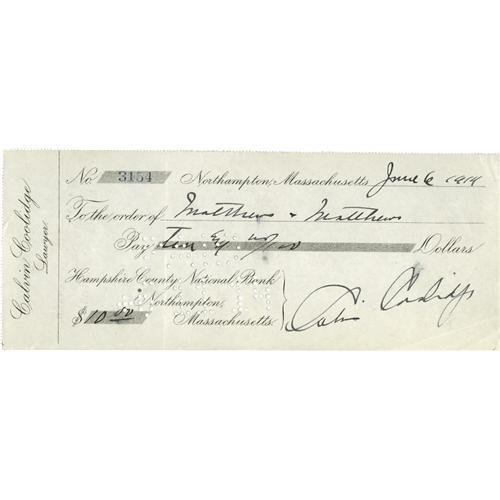 Calvin Coolidge
Lawyer
No 3154 Northampton, Massachusetts June 6 1914
To the order of Matthews & Matthews
Pay no/100 Dollars
Hampshire County National Bank
Northampton,
Massachusetts.
$10.00
Calvin Coolidge